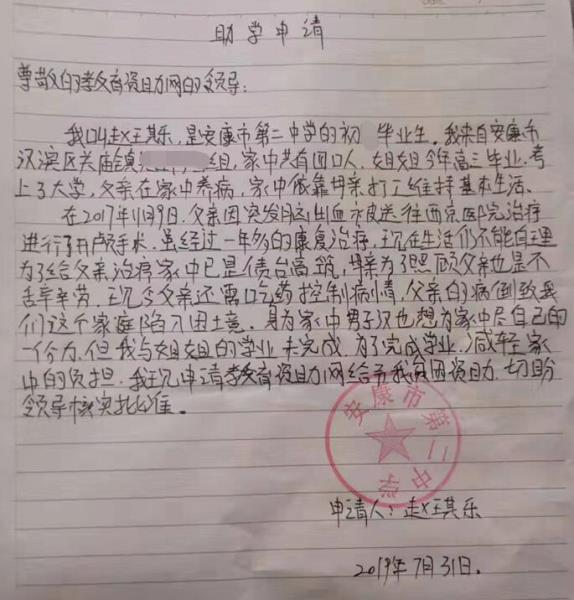 助学申请
尊敬的教育资助网的领导:
我叫赵王其乐,是安康市第二中学的初 毕业生。我来自安康市
汉滨区关庙镇 组,家中共有四口人,姐姐今年高三毕业,考
上了大学,父亲在家中养病,家中依靠母亲打工维持基本生活。
在2017年11月9日,父亲因突发脑溢血被送往西京医院治疗
进行了开颅手术,虽经过一年多的康复治疗,现在生活仍不能自理
为了给父亲治疗家中已是债台高筑,母亲为了照顾父亲也是不
辞辛劳,现今父亲还需吃药控制病情,父亲的病倒致我
们这个家庭陷入困境。身为家中男子汉也想为家中尽自己的
一份力,但我与姐姐的学业未完成,为了完成学业,减轻家
中的负担,我现申请教育资助网给予我贫困资助,切盼
领导核实批准。
安康市第二中学
申请人:赵王其乐
2019年7月31日.